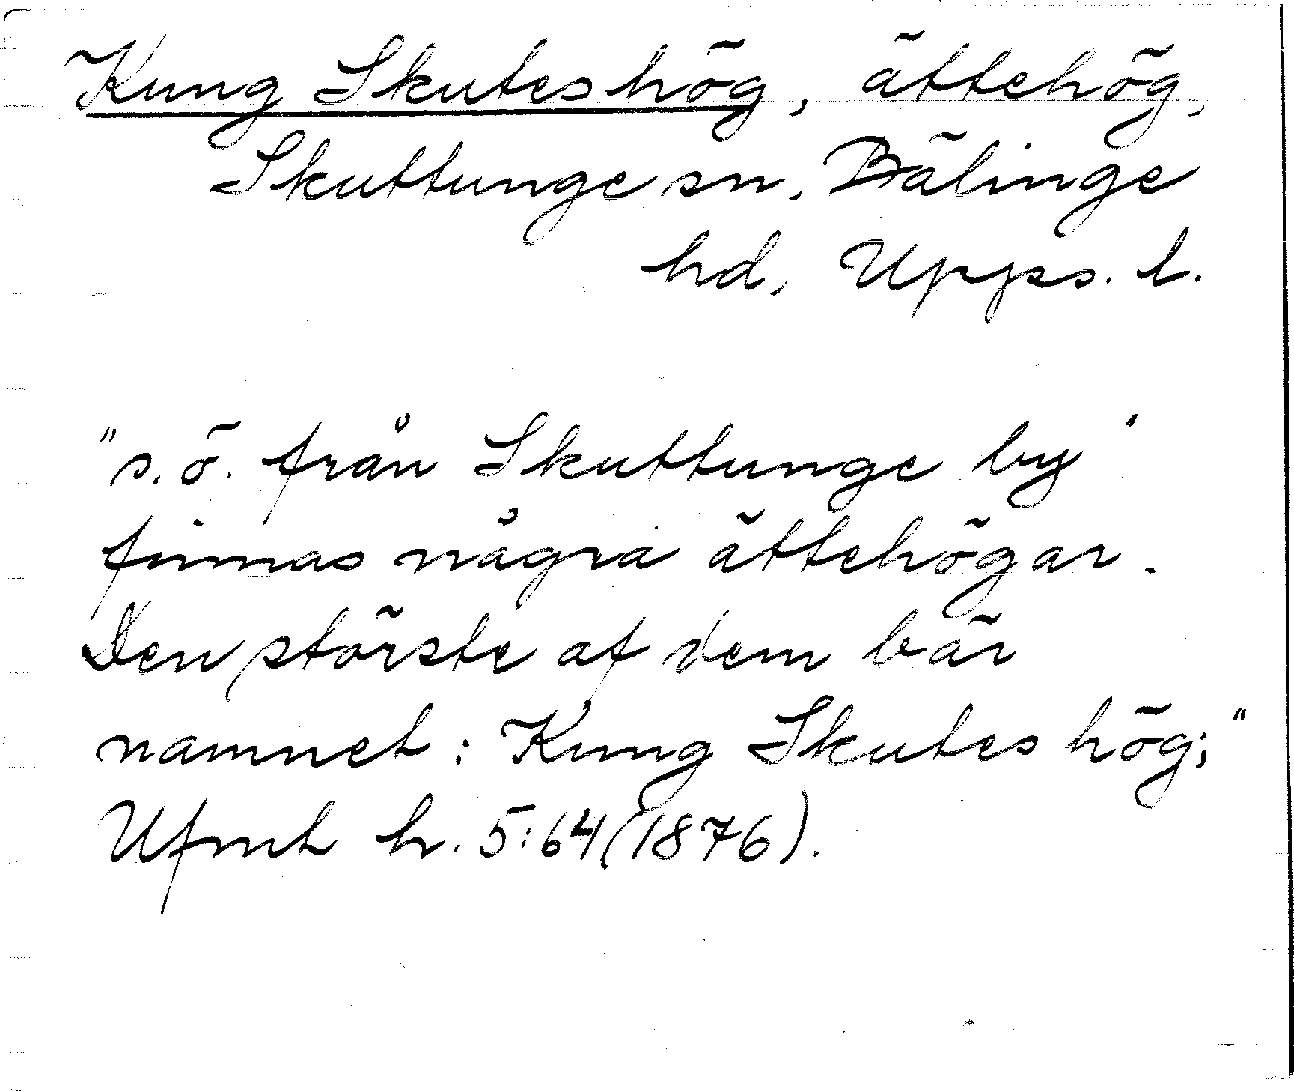 Kung Skuteshög, ättehög,
Skuttunge sn, Bälinge
hd, Upps. l.
"s.ö. från Skuttunge by
finnas några ättehögar.
Den störste af dem bär
namnet: Kung Skutes hög;"
Ufmt h. 5:64 (1876).